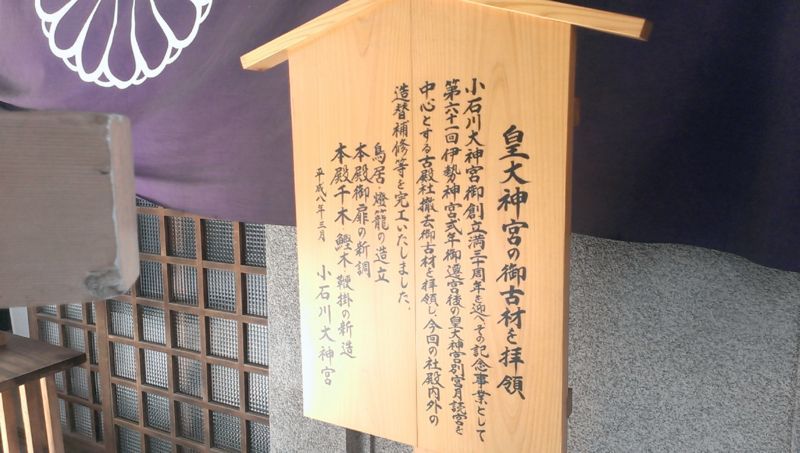 皇大神宮の御古材を拝領
小石川大神宮御創立満三十周年を迎へその記念事業として
第六十一回伊勢神宮式年御遷宮後の皇大神宮別宮月読宮を
中心とする古殿社撤去御古材を拝領し、今回の社殿内外の
造替補修等を完工いたしました。
鳥居・燈籠の造立
本殿御扉の新調
本殿千木 鰹木 鞭掛の新造
平成八年三月 小石川大神宮